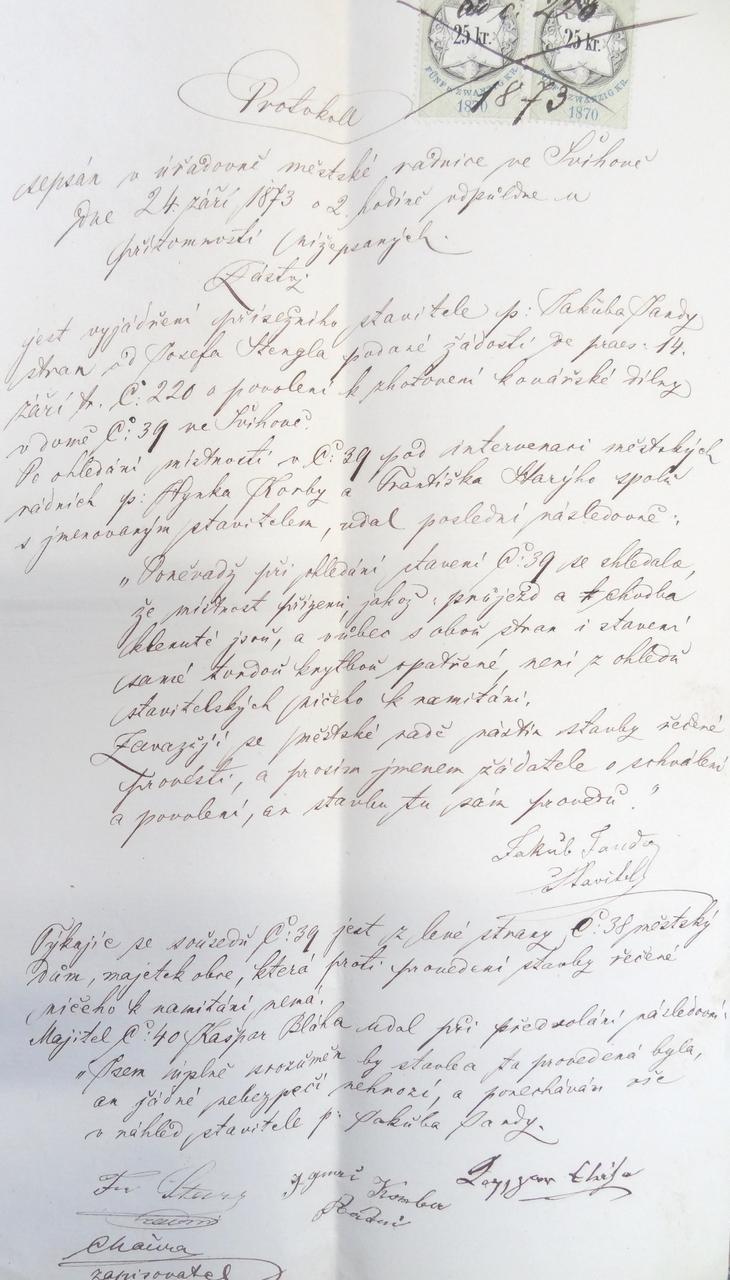 ad č: 220
25 kr. 25 kr.
FÜNF U ZWANZIG KR. FÜNF U ZWANZIG KR.
1870 1873 1870
Protokoll
sepsán v úřadovně městské radnice ve Švihově
dne 24. září 1873 o 2. hodině odpůldne u
přítomnosti nížepsaných.
Zástoj
jest vyjádření přísežního stavitele p: Jakuba Jandy
stran od Josefa Stengla podané žádosti de praes: 14.
září tr. Č: 220 o povolení k zhotovení kovářské dílny
v domě Č: 39 ve Švihově.
Po ohledání místností v Č: 39 pod intervenací městských
radních p: Hynka Korby a Františka Starýho spolu
s jmenovaným stavitelem, udal poslední následovně:
„Poněvadž při ohledání stavení Č: 39 se shledalo,
že místnost přízemí, jakož: průjezd a chodba
klenuté jsou, a vůbec s obou stran i stavení
samé tvrdou krytbou opatřené, není z ohledu
stavitelských ničeho k namítání.
Zavazuji se městské radě nástin stavby řečené
provésti, a prosím jmenem žádatele o schválení
a povolení, an stavbu tu sám provedu."
Jakub Janda
Stavitel
Týkajíc se sousedů Č: 39 jest z levé strany Č: 38 městský
dům, majetek obce, která proti provedení stavby řečené
ničeho k namítání nemá.
Majitel Č: 40 Kašpar Bláha udal při předvolání následovní:
„Jsem úplně srozuměn by stavba ta provedená byla,
an žádné nebezpečí nehrozí, a ponechávám vše
v náhled stavitele p: Jakuba Jandy.
Fr Starý
radní
Korba
Radní
Chaura
zapisovatel